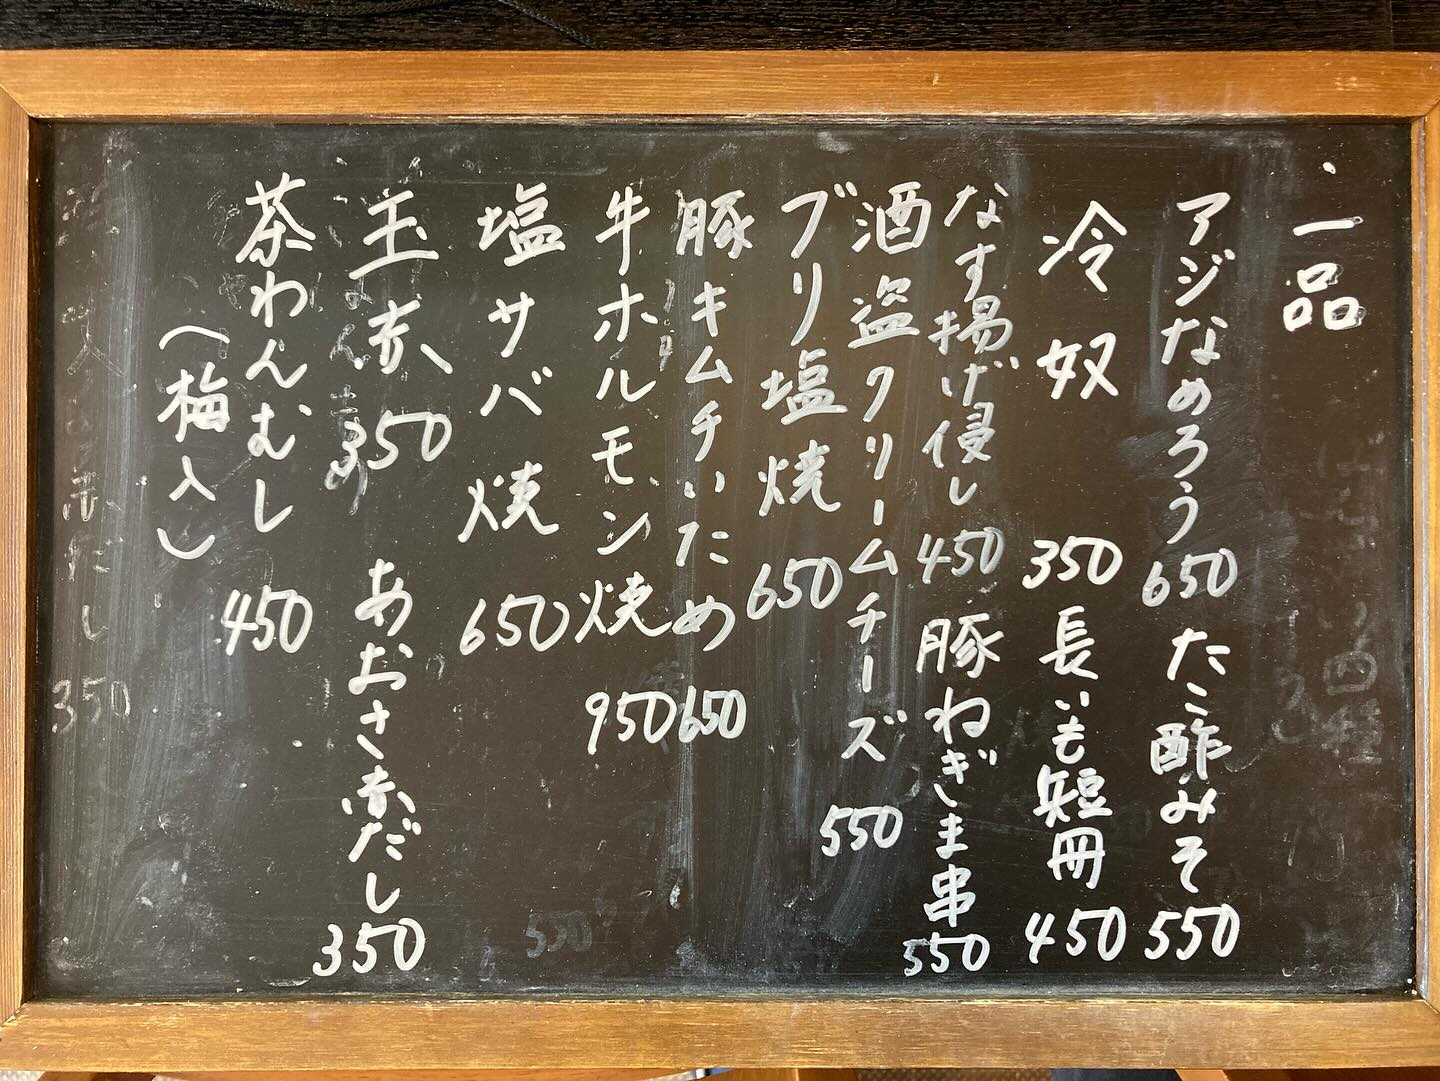 ・一品
アジなめろう 650 たこ酢みそ 550
冷奴 350 長いも短冊 450
なす揚げ侵し 450 豚ねぎま串 550
酒盗クリームチーズ 550
ブリ塩焼 650
豚キムチいため 650
牛ホルモン焼 950
塩サバ焼 650
玉赤 350 あおさ赤だし 350
茶わんむし 450
(梅入)
350